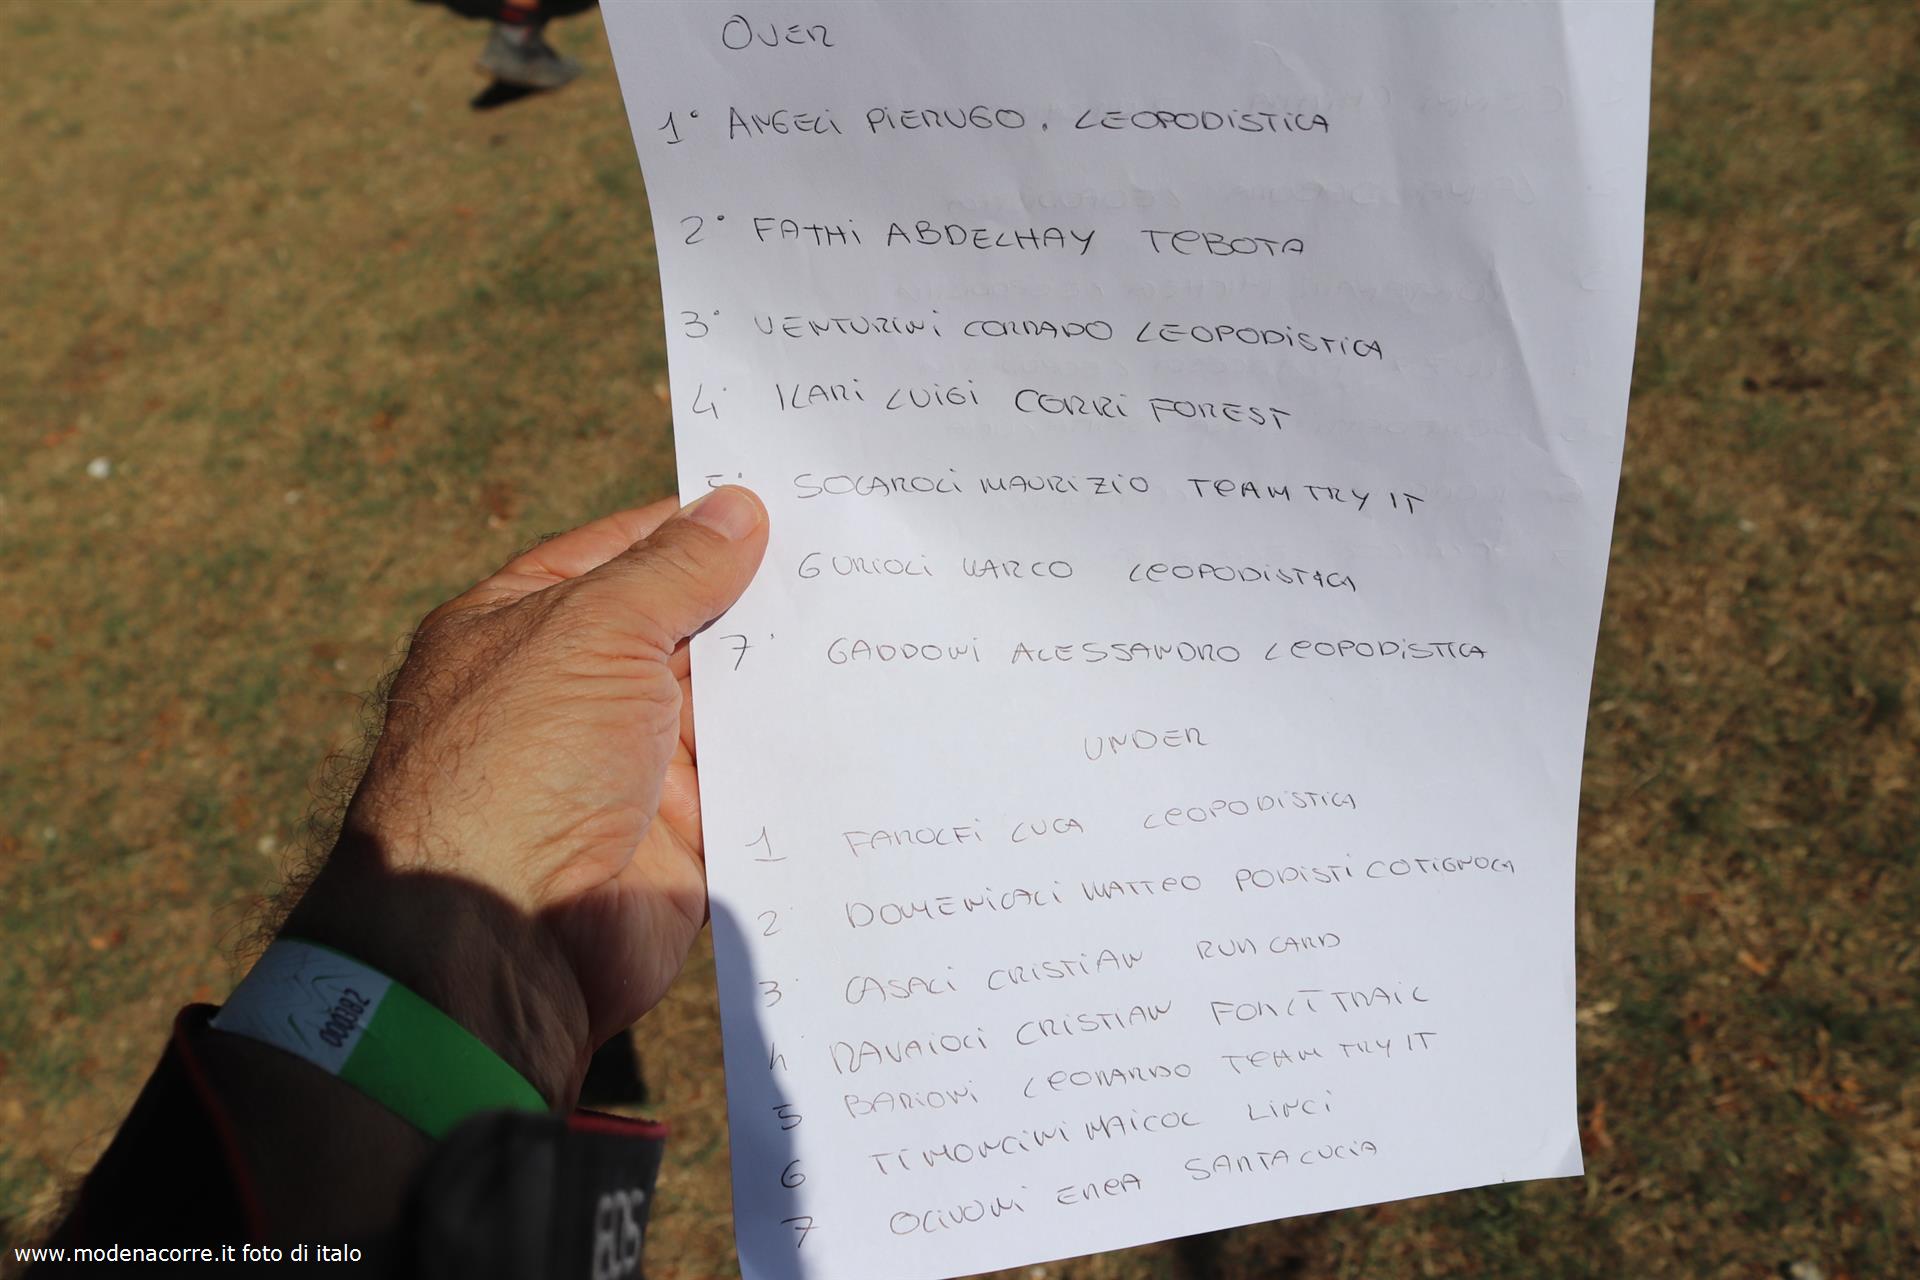 OVER
1° ANGELI PIERUGO. LEOPODISTICA
2° FATHI ABDELHAY TEBOTA
3° VENTURINI CORRADO LEOPODISTICA
4° ILARI LUIGI CORRI FOREST
5° SOCAROLI MAURIZIO TEAM TRY IT
GURIOLI MARCO LEOPODISTICA
7° GADDONI ALESSANDRO LEOPODISTICA
UNDER
1 FAROLFI LUCA LEOPODISTICA
2° DOMENICALI MATTEO PODISTI COTIGNOLA
3° CASALI CRISTIAN RUN CARD
4° RAVAIOLI CRISTIAN TRAIL
5 BARIONI LEONARDO TEAM TRY IT
6 TIMONCINI MAICOL LINCI
7 OLIVONI ENEA SANTA LUCIA
000382
EOS
www.modenacorre.it foto di italo